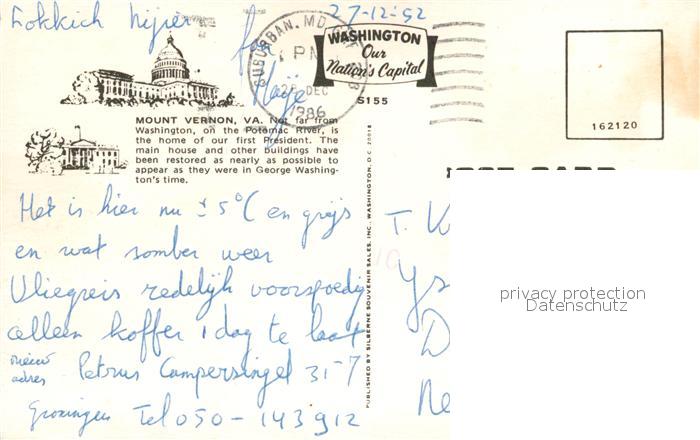 27-12-92
WASHINGTON
Our
Nation's Capital
S155
SUBURBAN, MD
PM
DEC
1986
162120
MOUNT VERNON, VA. Not far from
Washington, on the Potomac River, is
the home of our first President. The
main house and other buildings have
been restored as nearly as possible to
appear as they were in George Washing-
ton's time.
Het is hier nu ± 5°C en grijs
en wat somber weer
Vliegreis redelijk voorspoedig
alleen koffer 1 dag te laat
nieuw
adres Petrus Campersingel 31-7
Groningen Tel 050-143912
PUBLISHED BY SILBERNE SOUVENIR SALES, INC., WASHINGTON, D.C. 20018
POST CARD
T.
privacy protection
Datenschutz